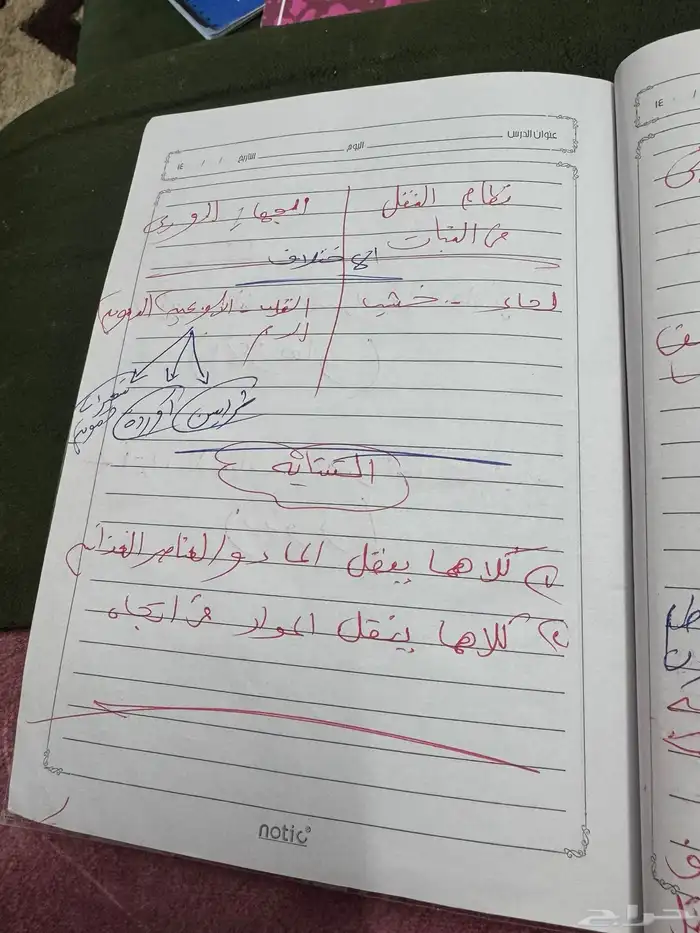 عنوان الدرس اليوم التاريخ / / ١٤
نظام النقل الجهاز الدوري
في النبات
الاختلاف
لحاء - خشب القلب - الأوعية الدموية
الدم
شرايين أوردة شعيرات دموية
التشابه
١) كلاهما ينقل الماء والعناصر الغذائية
٢) كلاهما ينقل المواد في اتجاه
notic
١٤ / /
حراج